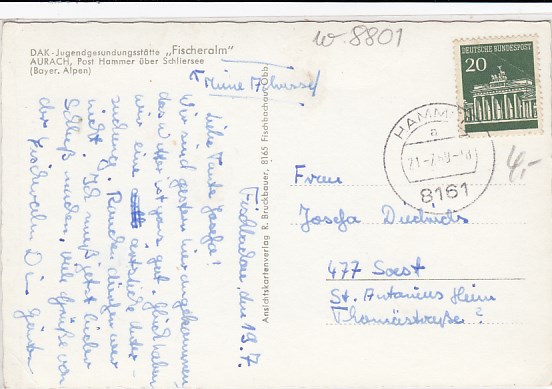 W. 8801
DAK-Jugendgesundungsstätte „Fischeralm"
AURACH, Post Hammer über Schliersee
(Bayer. Alpen)
DEUTSCHE BUNDESPOST
20
HAMM
a
21.-7.69-16
8161
4,-
Meine Adresse
Fischbachau, den 19.7.
Liebe Tante Josefa!
Wir sind gestern hier angekommen
das Wetter ist ganz gut. Gleich haben
wir eine ärztliche Unter-
suchung.
nicht. Ich muß jetzt leider
Schluß machen, viele Grüße von
der Fischeralm Dein
Ansichtskartenverlag R. Bruckbauer, 8165 Fischbachau/Obb.
Frau
Josefa Diedrichs
477 Soest
St. Antonius Heim
Thomästraße ?